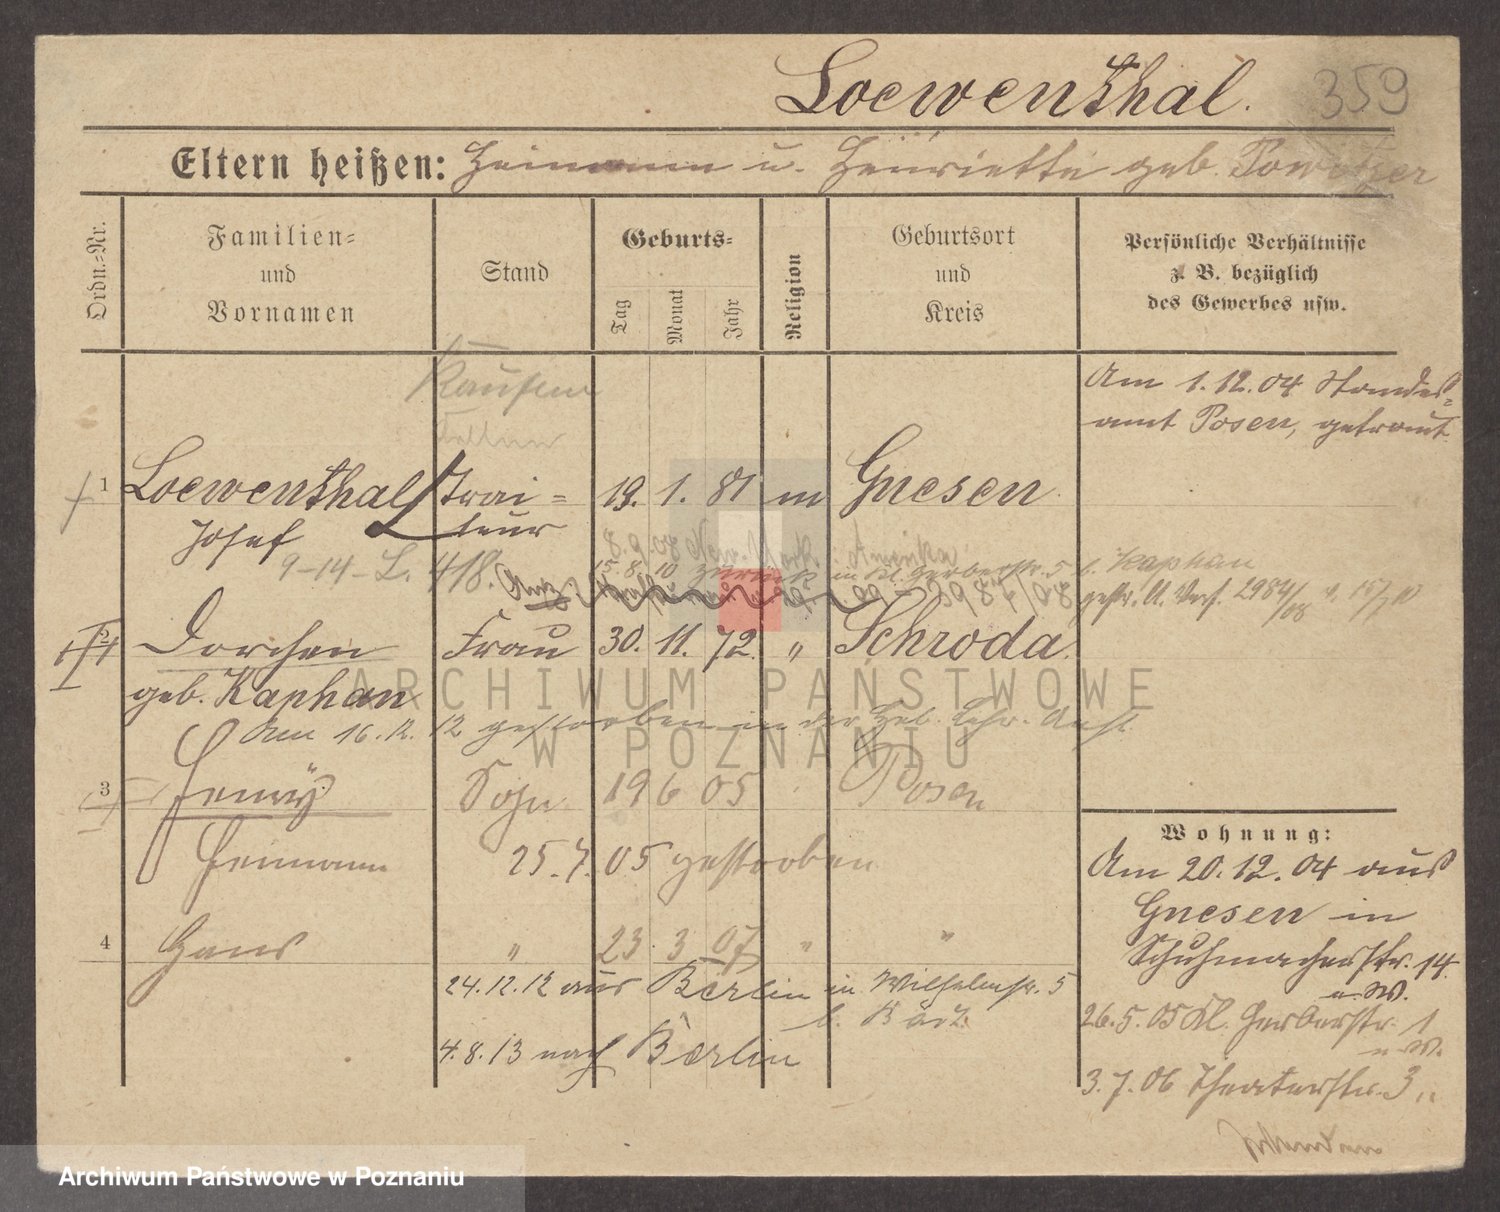 Loewenthal.
359
Eltern heißen: Heimann u. Henriette geb. Powitzer
Ordn.-Nr.
Familien-
und
Vornamen
Stand
Geburts-
Tag
Monat
Jahr
Religion
Geburtsort
und
Kreis
Persönliche Verhältnisse
z. B. bezüglich
des Gewerbes usw.
Am 1.12.04 Standes-
amt Posen, getraut.
Kaufm
Kellner
1 Loewenthal Trai- 19. 1. 81 m Gnesen
Josef teur
8.9.08 New-York Amerika
9-14-L. 418.
15.8.10 zurück in Kl. Gerberstr. 5 b. Kaphan
2984/08
2 Dorchen Frau 30. 11. 72. " Schroda.
geb. Kaphan
Am 16.12.12 gestorben in der Heb. Lehr. Anst.
3 Henry Sohn 19 6 05 Posen
Heimann 25.7.05 gestorben
4 Hans " 23. 3 07 " "
24.12.12 aus Berlin in Wilhelmstr. 5
b.
4.8.13 nach Berlin
Wohnung:
Am 20.12.04 aus
Gnesen in
Schuhmacherstr. 14
u. W.
26.5.05 Kl. Gerberstr. 1
u. W.
3.7.06 Theaterstr. 3 "
ARCHIWUM PAŃSTWOWE
W POZNANIU
Archiwum Państwowe w Poznaniu